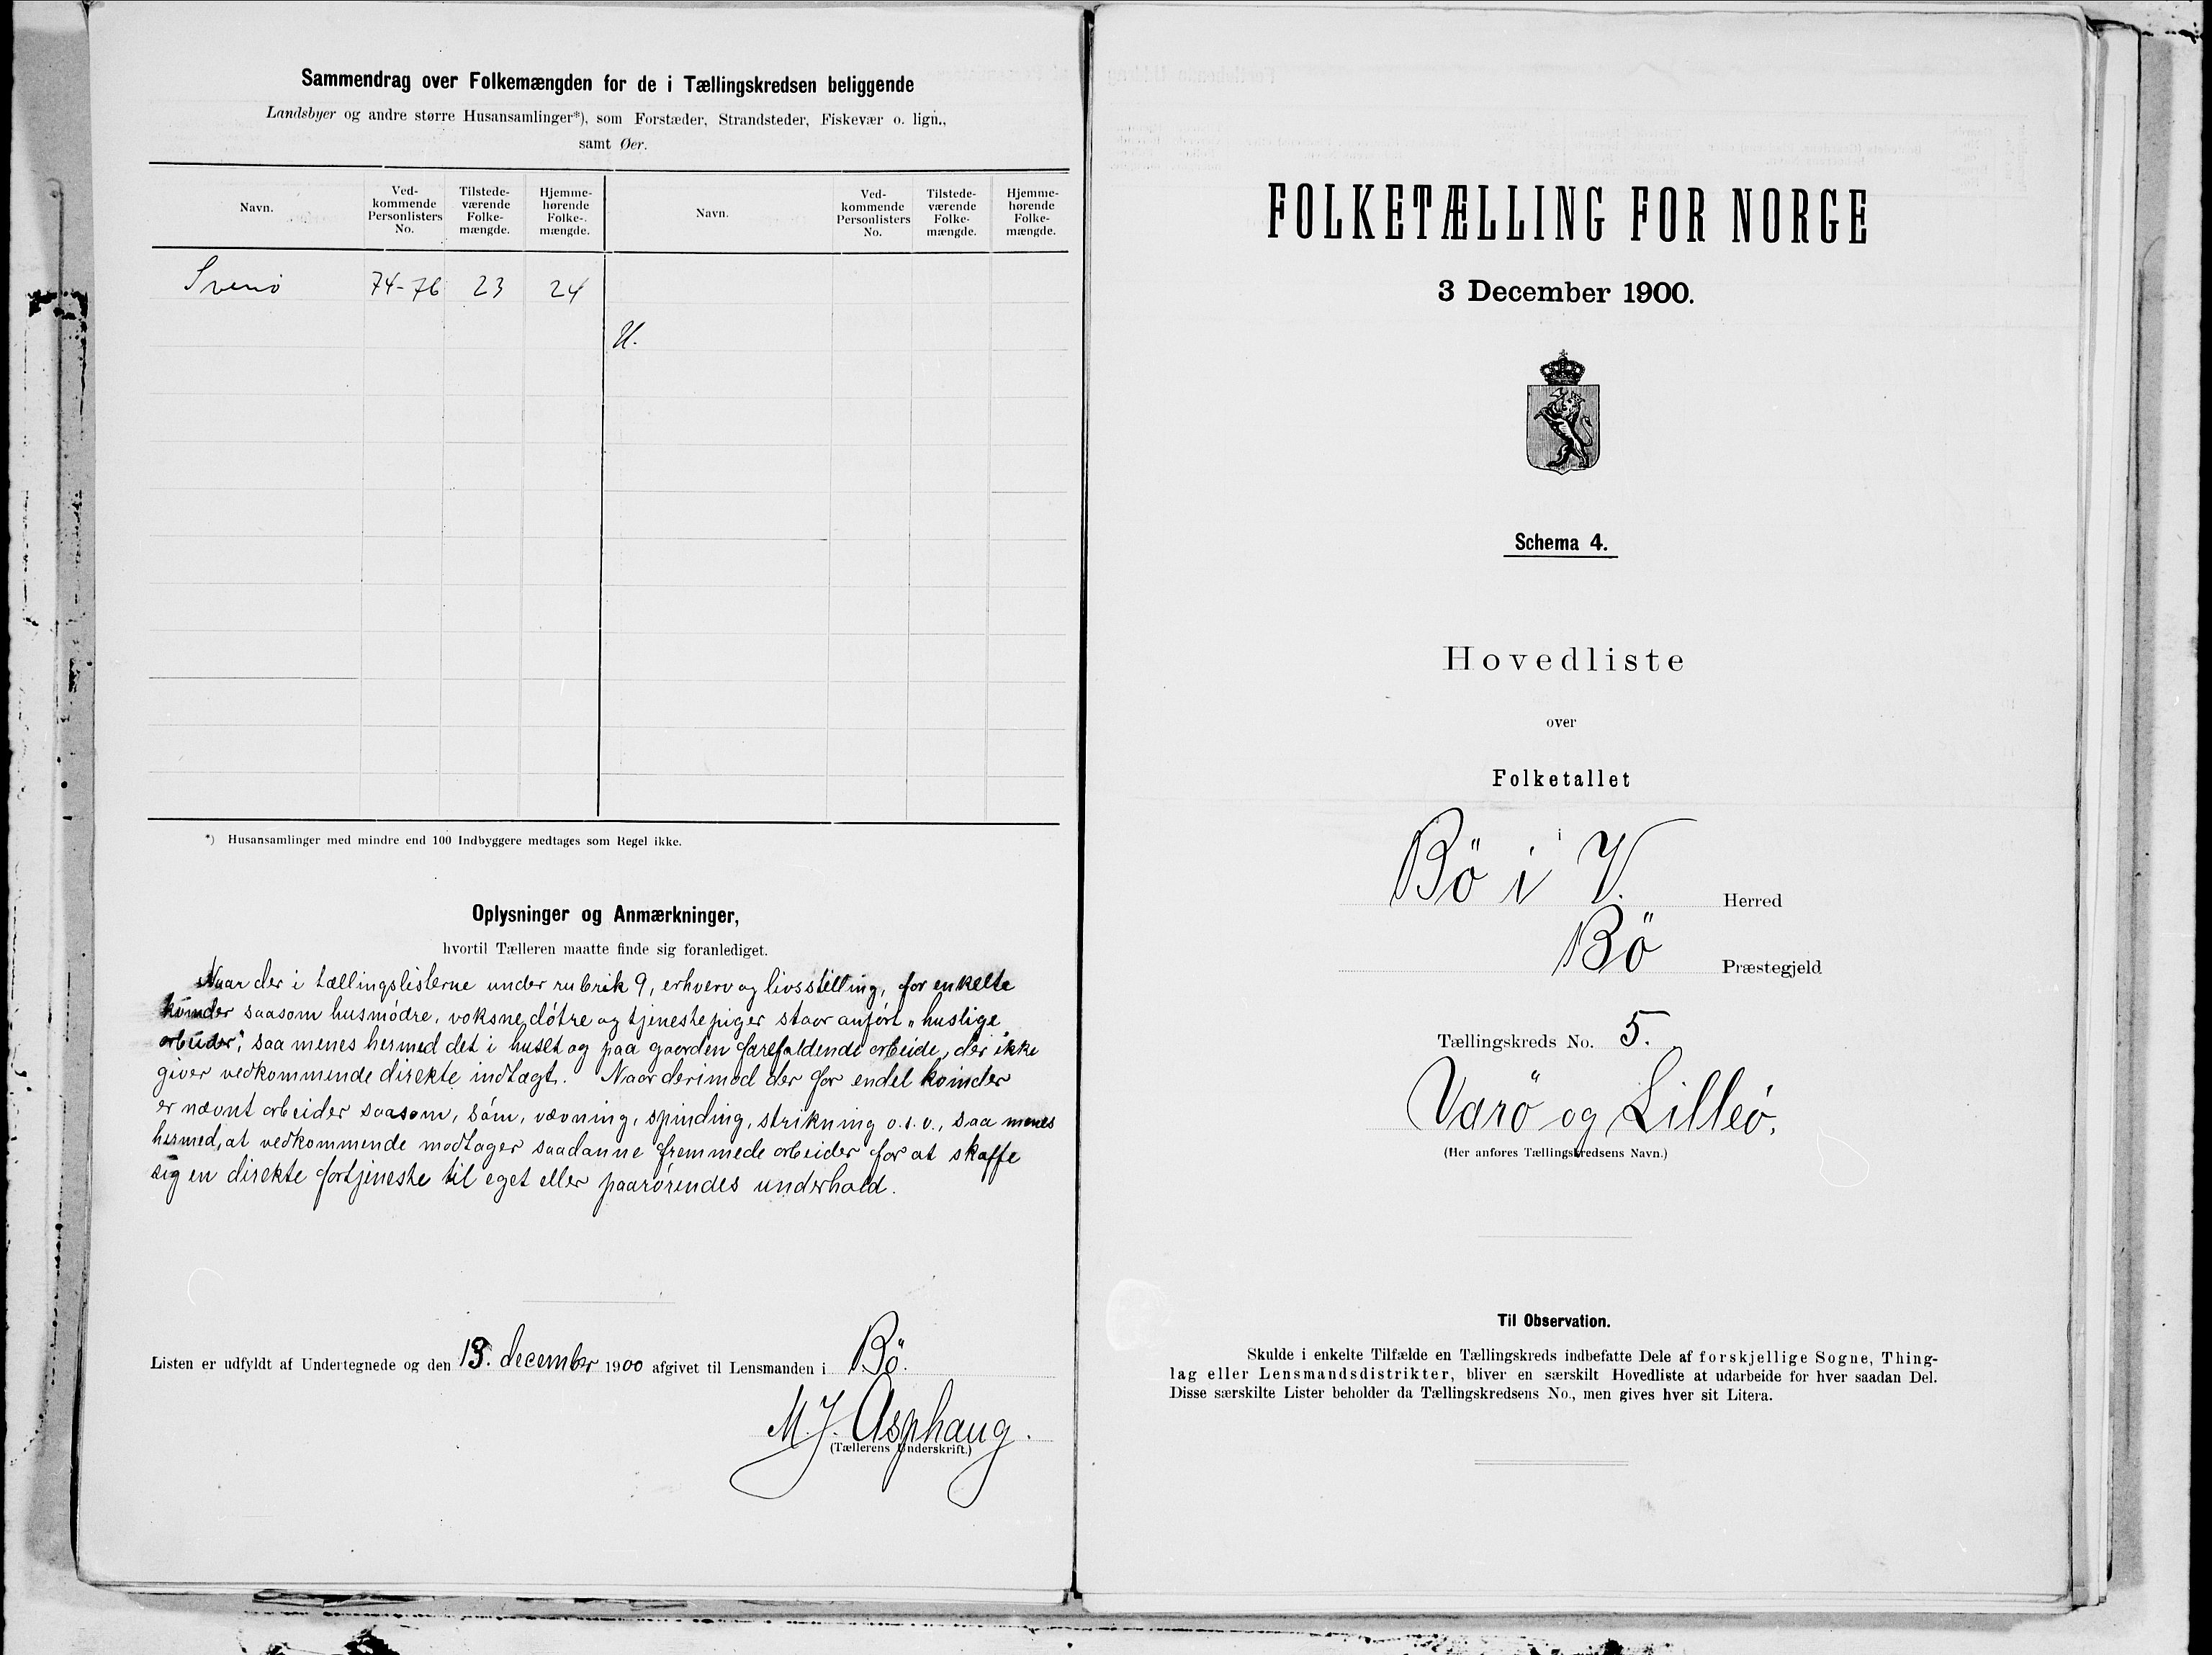 Sammendrag over Folkemængden for de i Tællingskredsen beliggende
Landsbyer og andre større Husansamlinger*), som Forstæder, Strandsteder, Fiskevær o. lign.,
samt Øer.
Navn.
Ved-
kommende
Personlisters
No.
Tilstede-
værende
Folke-
mængde.
Hjemme-
hørende
Folke-
mængde.
Navn.
Ved-
kommende
Personlisters
No.
Tilstede-
værende
Folke-
mængde.
Hjemme-
hørende
Folke-
mængde.
Svenö 74-76 23 24
U.
*) Husansamlinger med mindre end 100 Indbyggere medtages som Regel ikke.
Oplysninger og Anmærkninger,
hvortil Tælleren maatte finde sig foranlediget.
Naar der i tællingslisterne under rubrik 9, erhverv og livsstilling, for enkelte
kvinder saasom husmödre, voksne dötre og tjenestepiger staar anfört „huslige
arbeider", saa menes hermed det i huset og paa gaarden forefaldende arbeide, der ikke
giver vedkommende direkte indtægt. Naar derimod der for endel kvinder
er nævnt arbeider saasom, söm, vævning, spinding, strikning o. s. v., saa menes
hermed, at vedkommende modtager saadanne fremmede arbeider for at skaffe
sig en direkte fortjeneste til eget eller paarörendes underhold.
Listen er udfyldt af Undertegnede og den 13. december 1900 afgivet til Lensmanden i Bö.
M. J. Asphaug.
(Tællerens Underskrift.)
FOLKETÆLLING FOR NORGE
3 December 1900.
Schema 4.
Hovedliste
over
Folketallet
i
Bö i V. Herred
Bö Præstegjeld
Tællingskreds No. 5.
Værö og Lilleö.
(Her anføres Tællingskredsens Navn.)
Til Observation.
Skulde i enkelte Tilfælde en Tællingskreds indbefatte Dele af forskjellige Sogne, Thing-
lag eller Lensmandsdistrikter, bliver en særskilt Hovedliste at udarbeide for hver saadan Del.
Disse særskilte Lister beholder da Tællingskredsens No., men gives hver sit Litera.